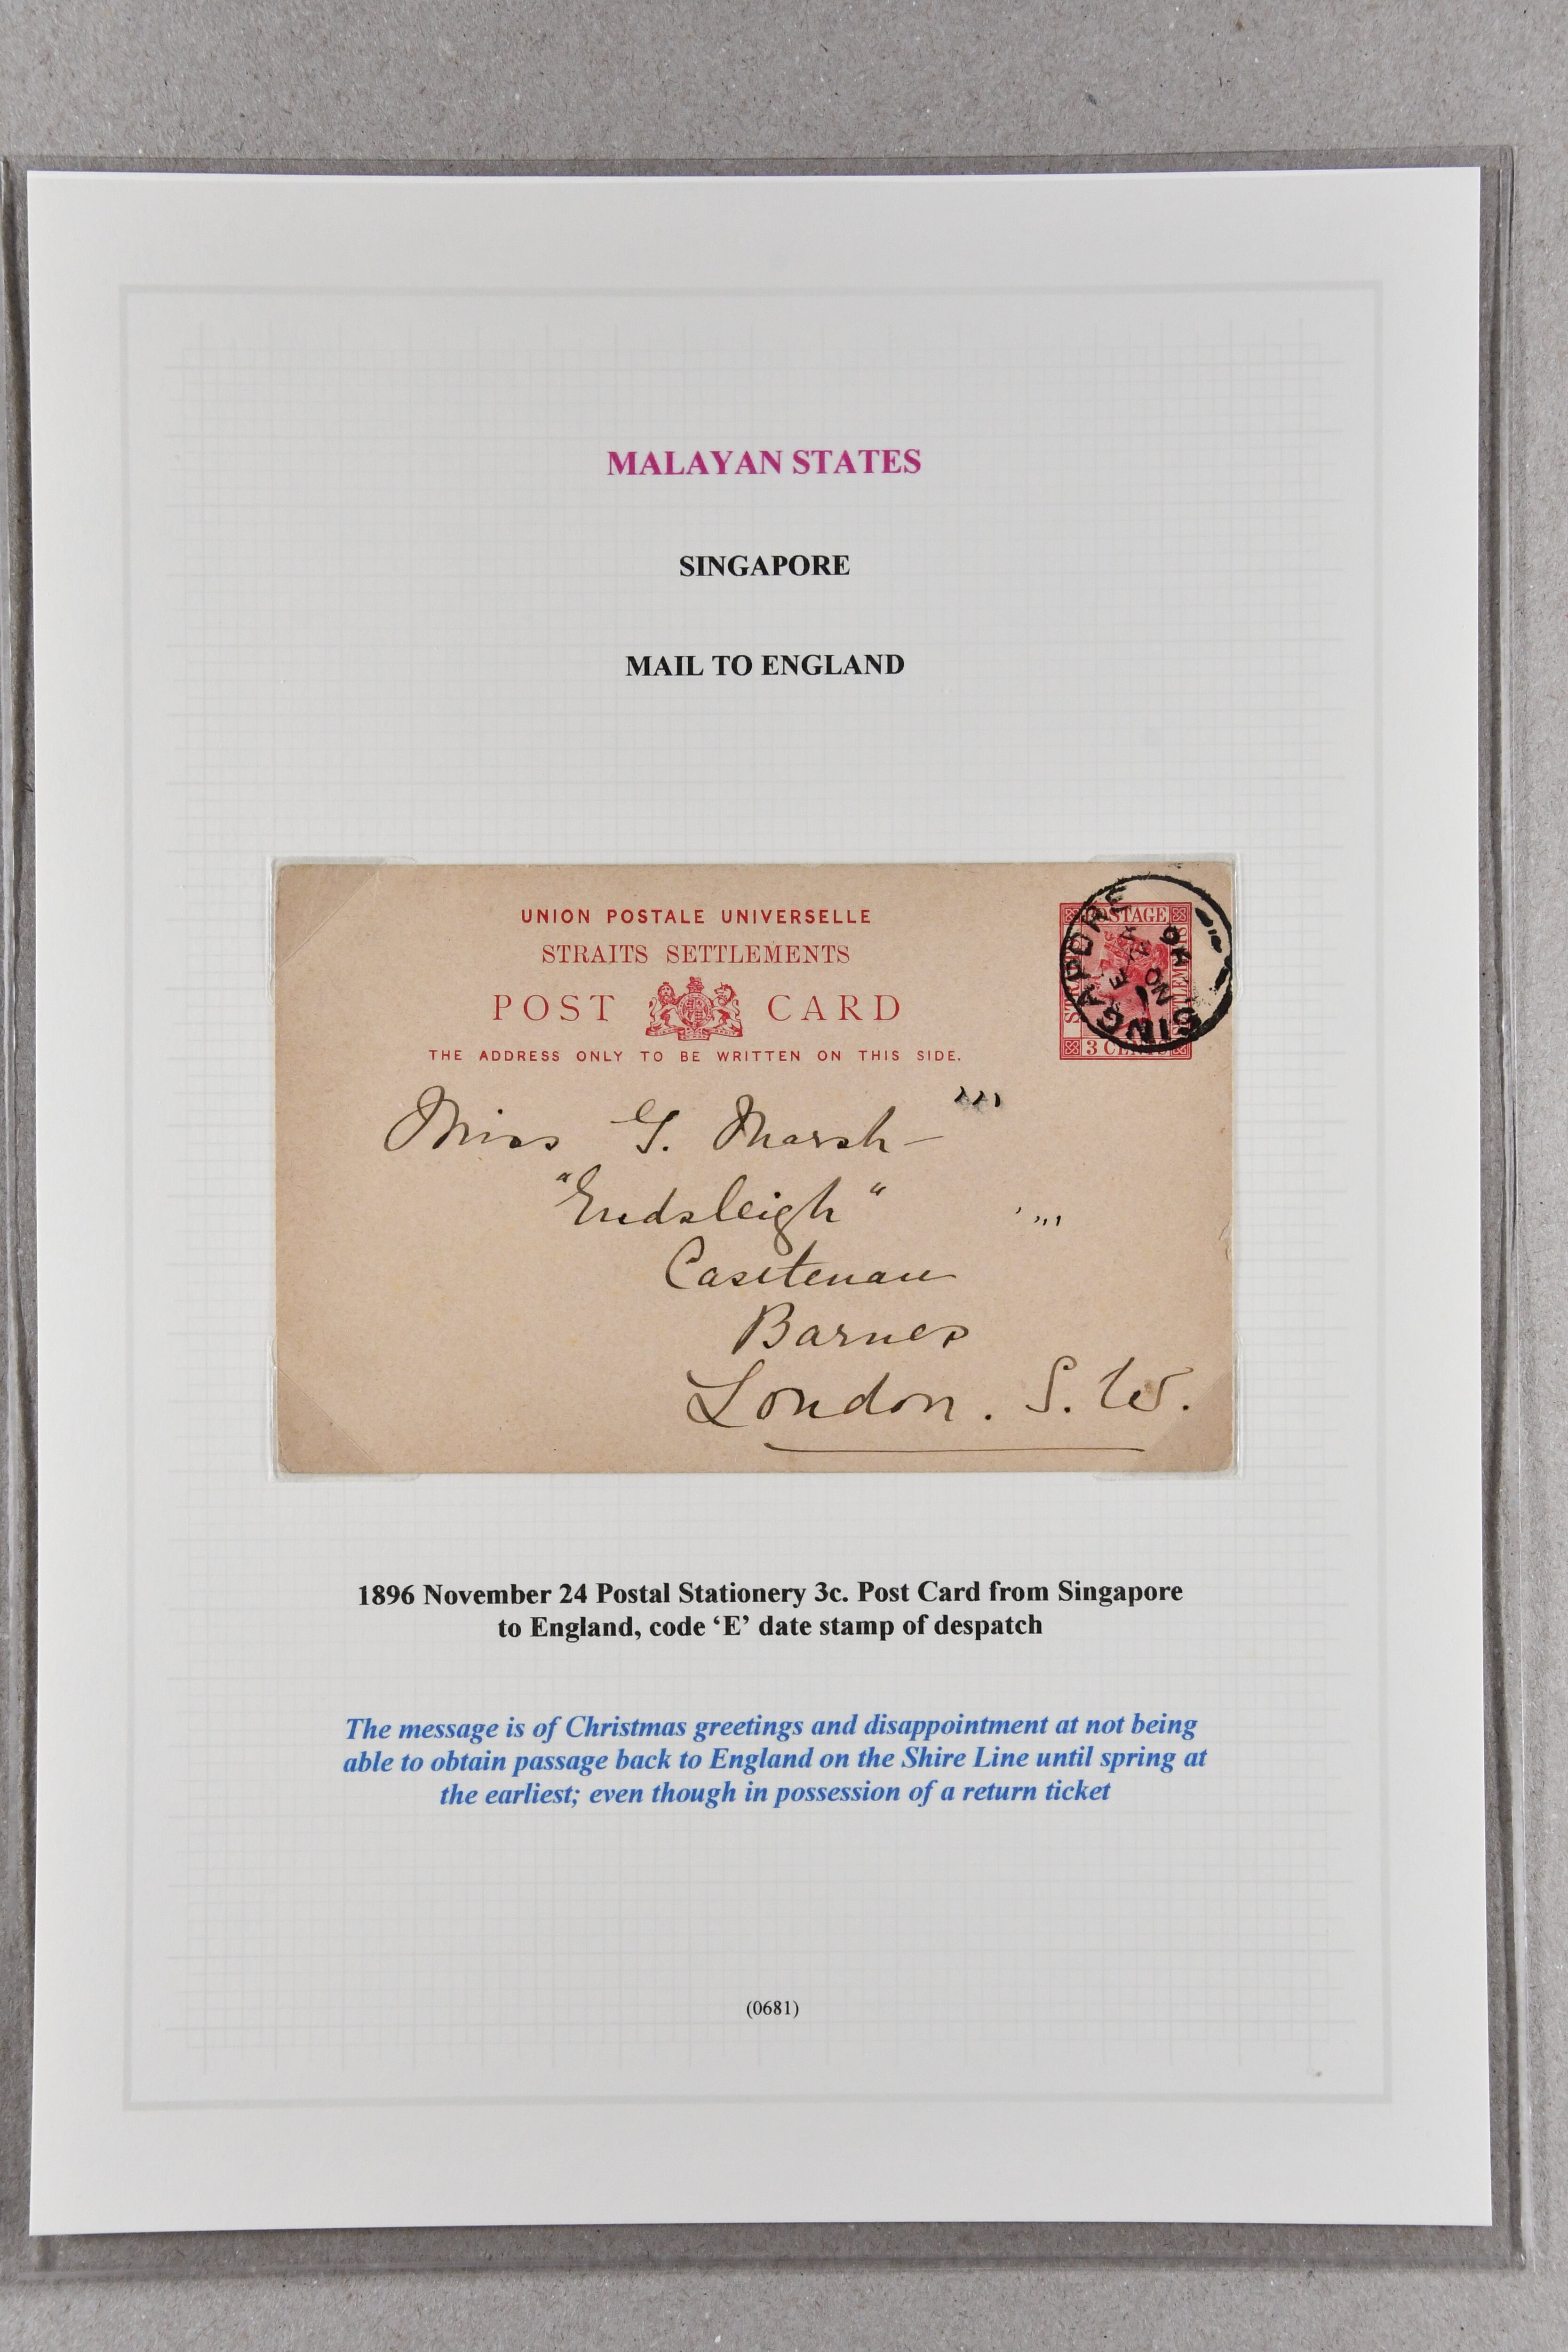 MALAYAN STATES
SINGAPORE
MAIL TO ENGLAND
UNION POSTALE UNIVERSELLE
STRAITS SETTLEMENTS
POST CARD
THE ADDRESS ONLY TO BE WRITTEN ON THIS SIDE.
POSTAGE
3 CENTS
SINGAPORE
E
NO
96
Miss G. Marsh
"Endsleigh"
Casetenau
Barnes
London. S. W.
1896 November 24 Postal Stationery 3c. Post Card from Singapore
to England, code ‘E’ date stamp of despatch
The message is of Christmas greetings and disappointment at not being
able to obtain passage back to England on the Shire Line until spring at
the earliest; even though in possession of a return ticket
(0681)